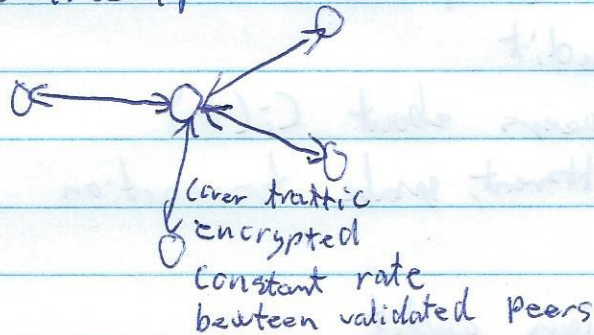 Cover traffic
encrypted
Constant rate
bewteen validated peers